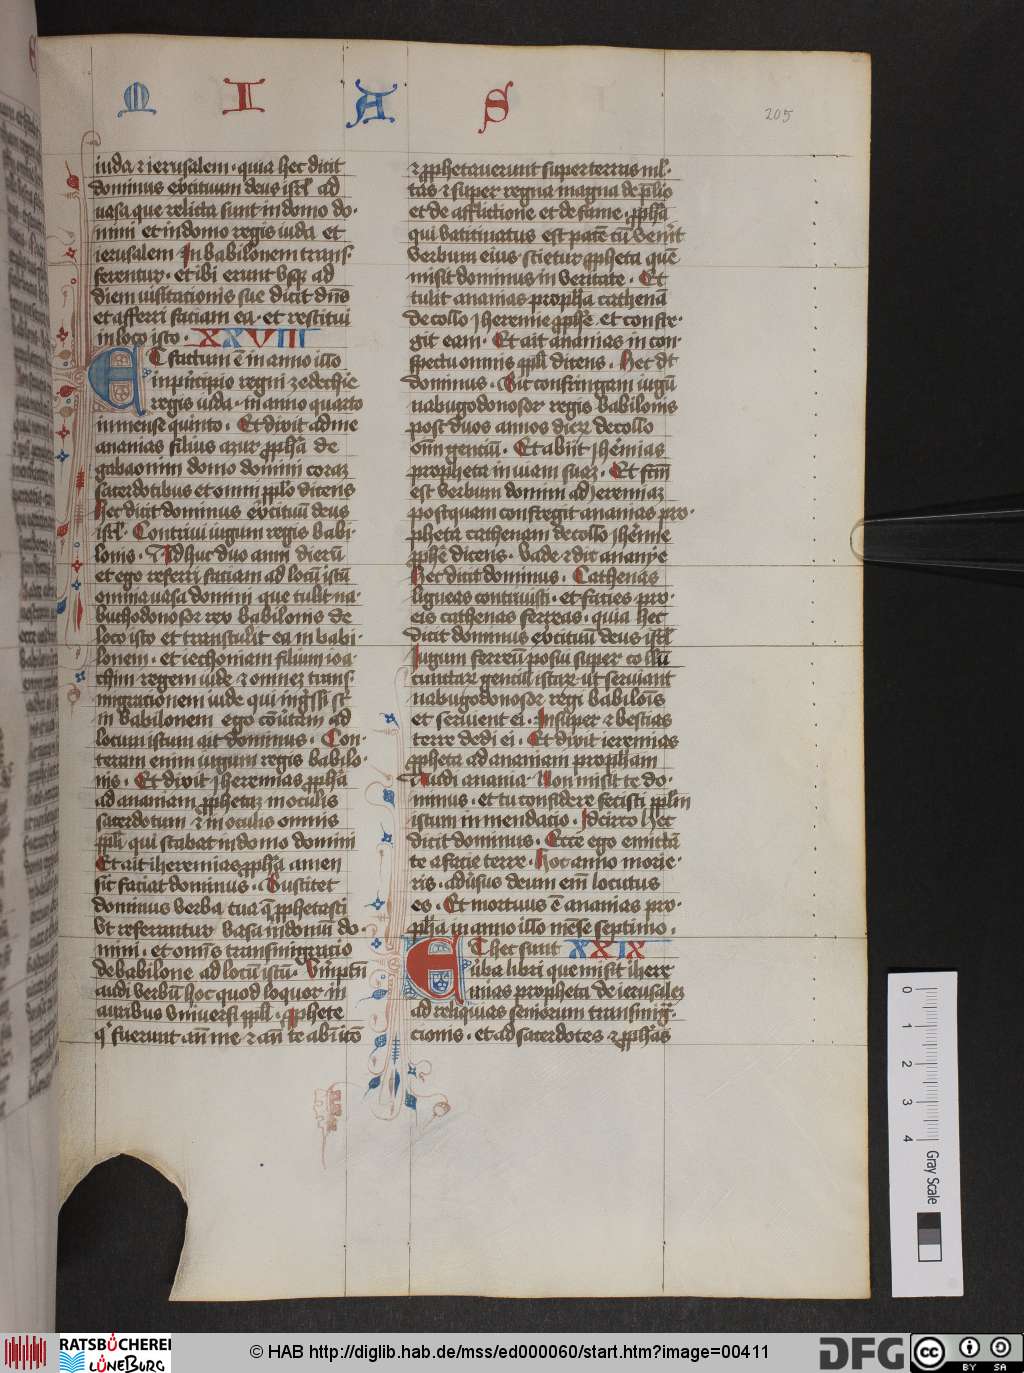 M I A S
205
iuda et ierusalem. quia hec dicit
dominus exercituum deus isrl ad
uasa que relicta sunt in domo do-
mini et in domo regis iuda et
ierusalem In babilonem trans-
ferentur. et ibi erunt vsque ad
diem uisitationis sue dicit dns
et afferri faciam ea. et restitui
in loco isto. XXVIII
ET factum ē in anno illo
in principio regni zedechie
regis iuda. in anno quarto
in mense quinto. Et dixit ad me
ananias filius azur ꝓpha de
gabaon in domo domini coraz
sacerdotibus et omni pplo dicens
Hec dicit dominus exercituū deus
isrl. Contriui iugum regis babi-
lonis. Adhuc duo anni dierū
et ego referri faciam ad locū istū
omnia uasa domini que tulit na-
buchodonosor rex babilonis de
loco isto et transtulit ea in babi-
lonem. et iechoniam filium ioa-
chim regem iude et omnez trans-
migrationem iude qui ingssi st
in babilonem ego cōuertam ad
locum istum ait dominus. Con-
teram enim iugum regis babilo-
nis. Et dixit Jheremias ꝓpha
ad ananiam ꝓphetaz in oculis
sacerdotum et in oculis omnis
ppli qui stabat in domo domini
Et ait iheremias ꝓpha amen
sic faciat dominus. Suscitet
dominus verba tua q̄ ꝓphetasti
Vt referantur vasa in domū do-
mini. et omīs transmigracio
de babilone ad locū istū. Verūptn
audi verbū hoc quod loquor in
auribus vniuersi ppli. Prophete
q fuerunt an me et an te ab inicō
et ꝓphetauerunt super terras ml-
tas et super regna magna de prelio
et de afflictione et de fame. ꝓpha
qui vaticinatus est pacē cū venerit
verbum eius scietur ꝓpheta quē
misit dominus in veritate. Et
tulit ananias propha cathenā
de collo Jheremie ꝓphe et confre-
git eam. Et ait ananias in con-
spectu omnis ppli dicens. Hec dt
dominus. Sic confringam iugū
nabugodonosor regis babilonis
post duos annos dierz de collo
omī gentiū. Et abiit Jheremias
propheta in uiam suaz. Et ftm
est verbum domini ad Jeremiaz
postquam confregit ananias pro-
pheta cathenam de collo Jheremie
ꝓphe dicens. Vade et dic ananye
Hec dicit dominus. Cathenas
ligneas contriuisti. et facies pro-
eis cathenas ferreas. quia hec
dicit dominus exercituū deus isrl
Iugum ferreū posui super collū
cunctarz gentiū istarz ut seruiant
nabugodonosor regi babilonis
et seruient ei. Insuper et bestias
terre dedi ei. Et dixit ieremias
ꝓpheta ad ananiam propham
Audi anania. Non misit te do-
minus. et tu confidere fecisti pplm
istum in mendacio. Idcirco hec
dicit dominus. Ecce ego emittā
te a facie terre. Hoc anno morie-
ris. aduersus deum em locutus
es. Et mortuus ē ananias pro-
pha in anno illo mēse septimo.
ET hec sunt XXIX
uerba libri que misit ihere
mias propheta de ierusalez
ad reliquias seniorum transmigr-
cionis. et ad sacerdotes et ꝓphas
0 1 2 3 4
Gray Scale
RATSBÜCHEREI
LÜNEBURG
© HAB http://diglib.hab.de/mss/ed000060/start.htm?image=00411
DFG
cc BY SA